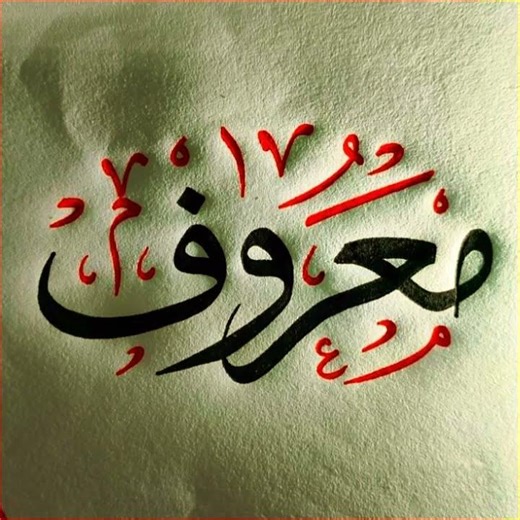 معروف